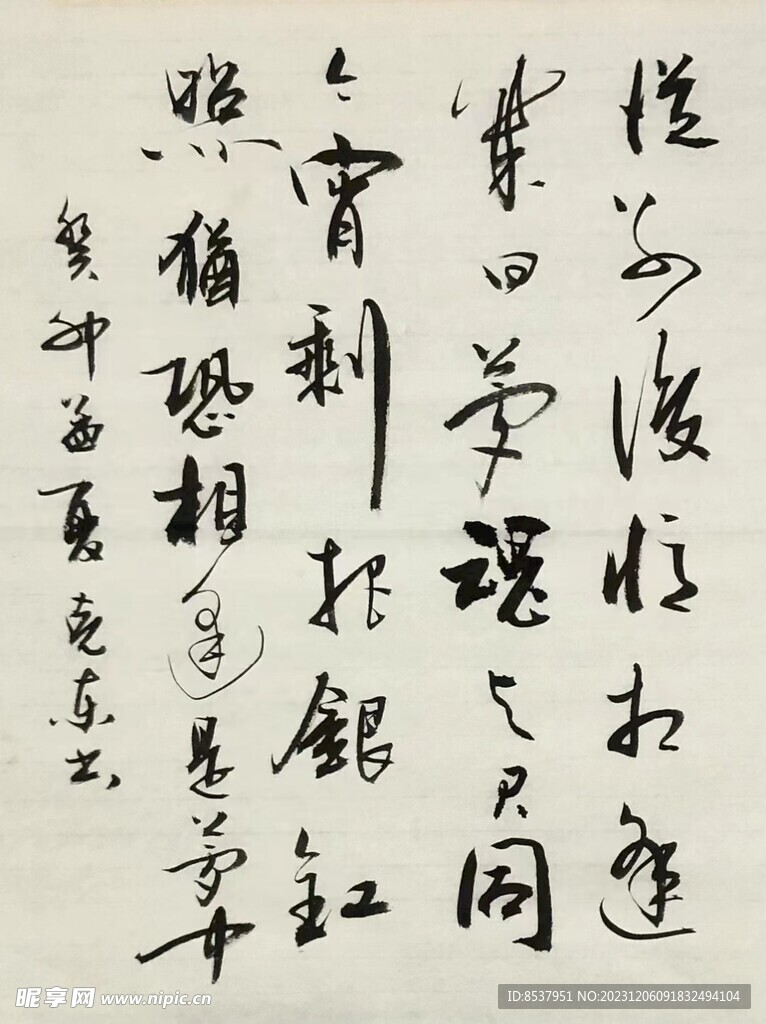 從別後憶相逢
幾回夢魂与君同
今宵剩把銀缸
照猶恐相逢是夢中
癸卯夏克东书
昵享网 www.nipic.cn
ID:8537951 NO:20231206091832494104